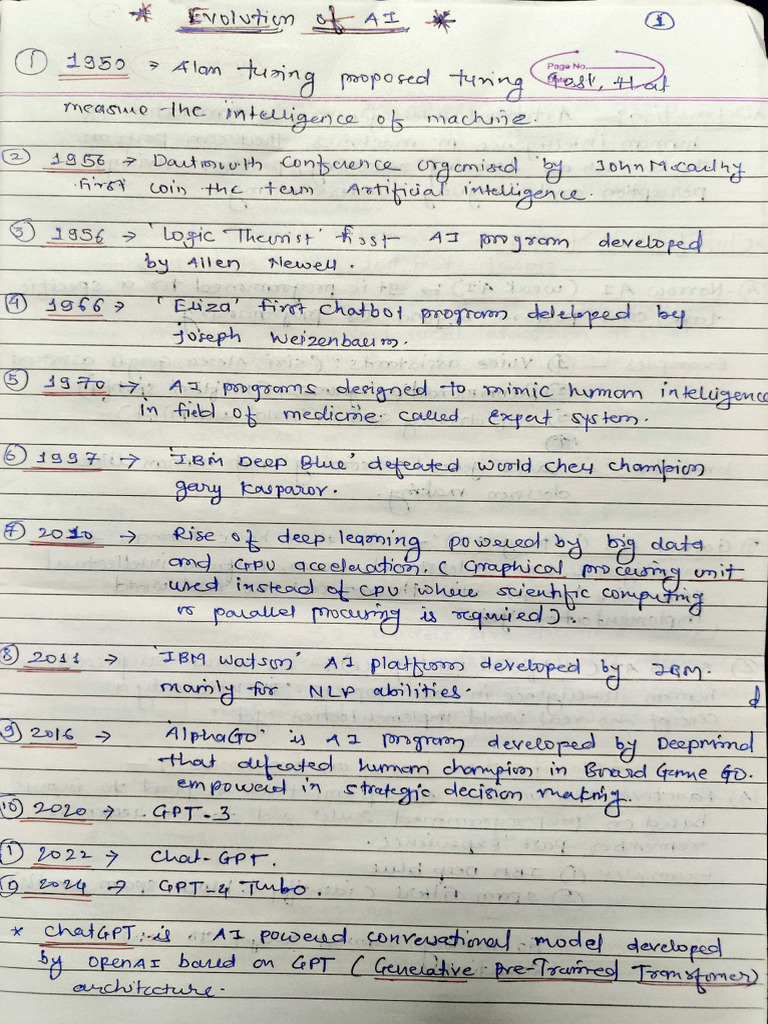 * Evolution of AI *
1
Page No.
① 1950 → Alan turing proposed turing test, that
measure the intelligence of machine.
② 1956 → Dartmouth Conference organised by John McCarthy
first coin the term Artificial intelligence.
③ 1956 → 'Logic Theorist' first AI program developed
by Allen Newell.
④ 1966 → 'Eliza' first chatbot program developed by
Joseph Weizenbaum.
⑤ 1970 → AI programs designed to mimic human intelligence
in field of medicine called Expert system.
⑥ 1997 → 'IBM Deep Blue' defeated world chess champion
gary Kasparov.
⑦ 2010 → Rise of deep learning powered by big data
and GPU acceleration. (Graphical processing unit
used instead of CPU where scientific computing
or parallel processing is required).
⑧ 2011 → 'IBM Watson' AI platform developed by IBM.
mainly for NLP abilities.
d
⑨ 2016 → AlphaGo' is AI program developed by Deepmind
that defeated human champion in Board Game GO.
empowered in strategic decision making.
⑩ 2020 → GPT-3
① 2022 → Chat-GPT.
2024 → GPT-4 Turbo.
* ChatGPT is AI powered conversational model developed
by OPENAI based on GPT (Generative pre-Trained Transfomer)
architecture.